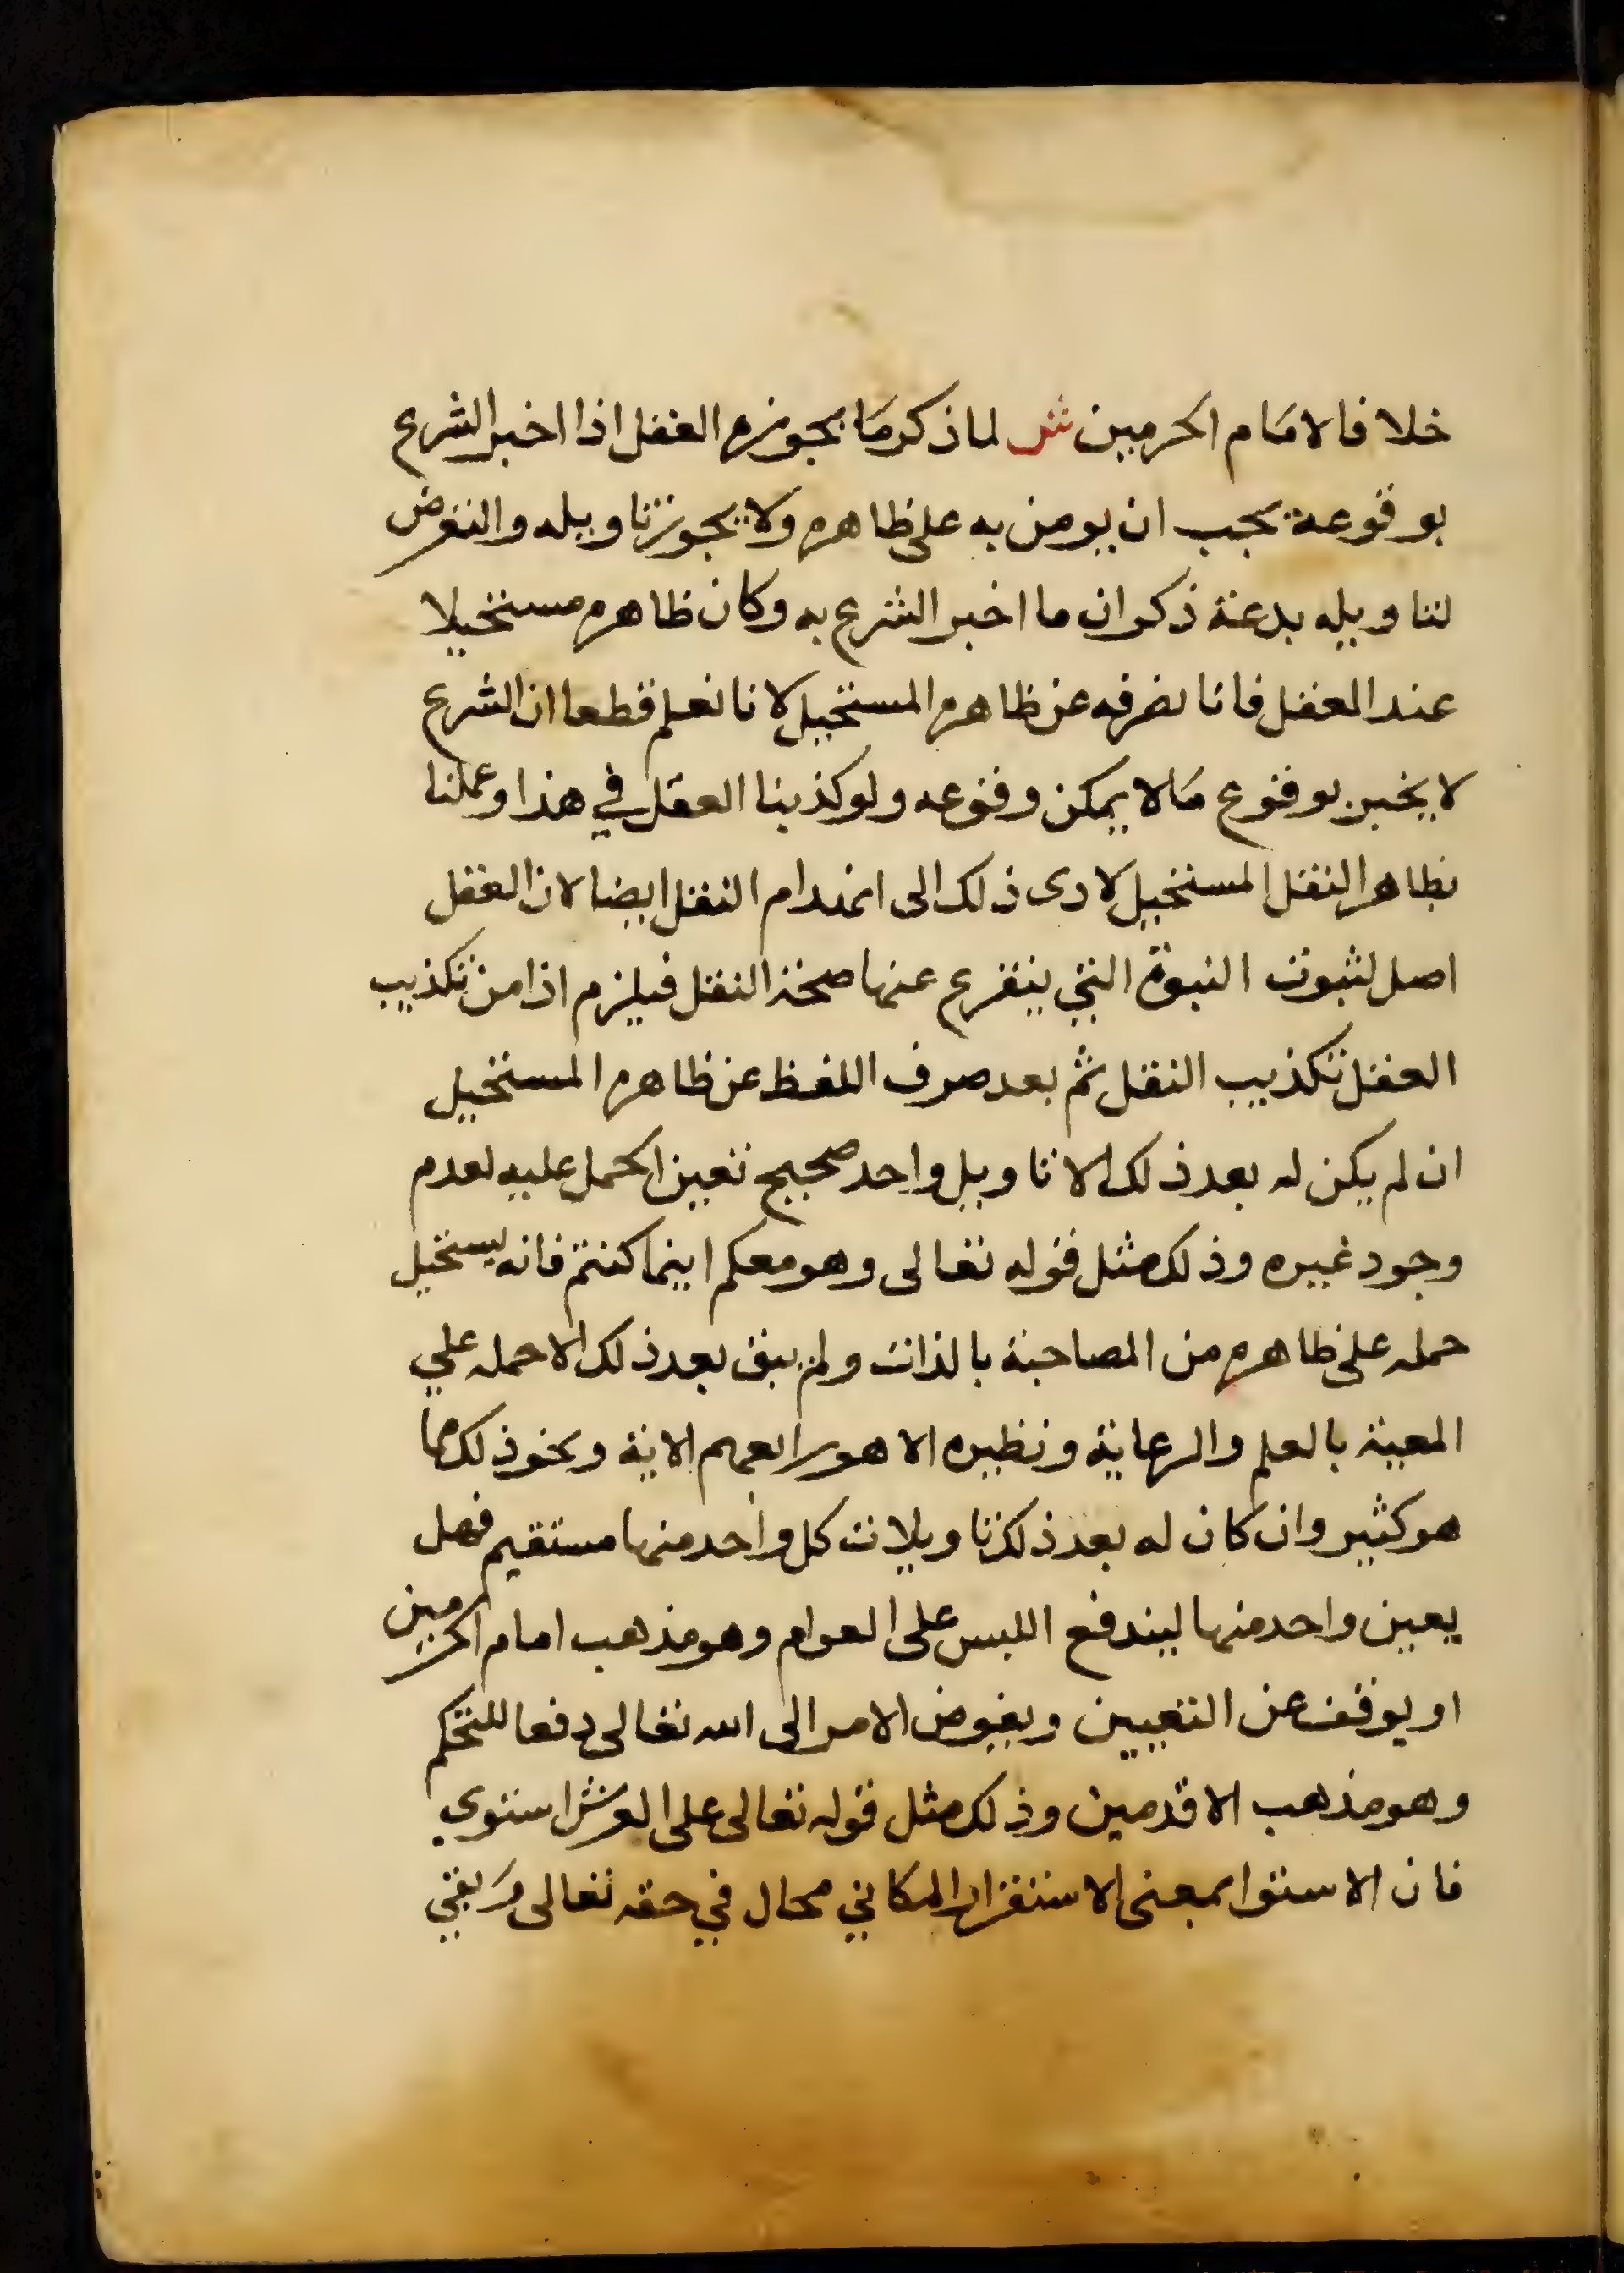 خلافا لامام الحرمين ش لما ذكر ما يجوزه العقل اذا اخبر الشرع
بوقوعه يجب ان يومن به على ظاهره ولا يجوز تاويله والتعرض
لتاويله بدعة ذكر ان ما اخبر الشرع به وكان ظاهره مستحيلا
عند العقل فانا نصرفه عن ظاهره المستحيل لانا نعلم قطعا ان الشرع
لا يخبر بوقوع ما لا يمكن وقوعه ولو كذبنا العقل في هذا وعملنا
بظاهر النقل المستحيل لادى ذلك الى انهدام النقل ايضا لان العقل
اصل لثبوت النبوة التي يتفرع عنها صحة النقل فيلزم اذا من تكذيب
العقل تكذيب النقل ثم بعد صرف اللفظ عن ظاهره المستحيل
ان لم يكن له بعد ذلك الا تاويل واحد صحيح تعين الحمل عليه لعدم
وجود غيره وذلك مثل قوله تعالى وهو معكم اينما كنتم فانه يستحيل
حمله على ظاهره من المصاحبة بالذات ولم يبق بعد ذلك الا حمله علي
المعية بالعلم والرعاية ونظيره الا هو رابعهم الاية ونحو ذلك مما
هو كثير وان كان له بعد ذلك تاويلات كل واحد منها مستقيم فهل
يعين واحد منها ليندفع اللبس على العوام وهو مذهب امام الحرمين
او يوقف عن التعيين ويفوض الامر الى الله تعالى دفعا للتحكم
وهو مذهب الاقدمين وذلك مثل قوله تعالى على العرش استوي
فان الاستوا بمعنى الاستقرار المكاني محال في حقه تعالى وبقي